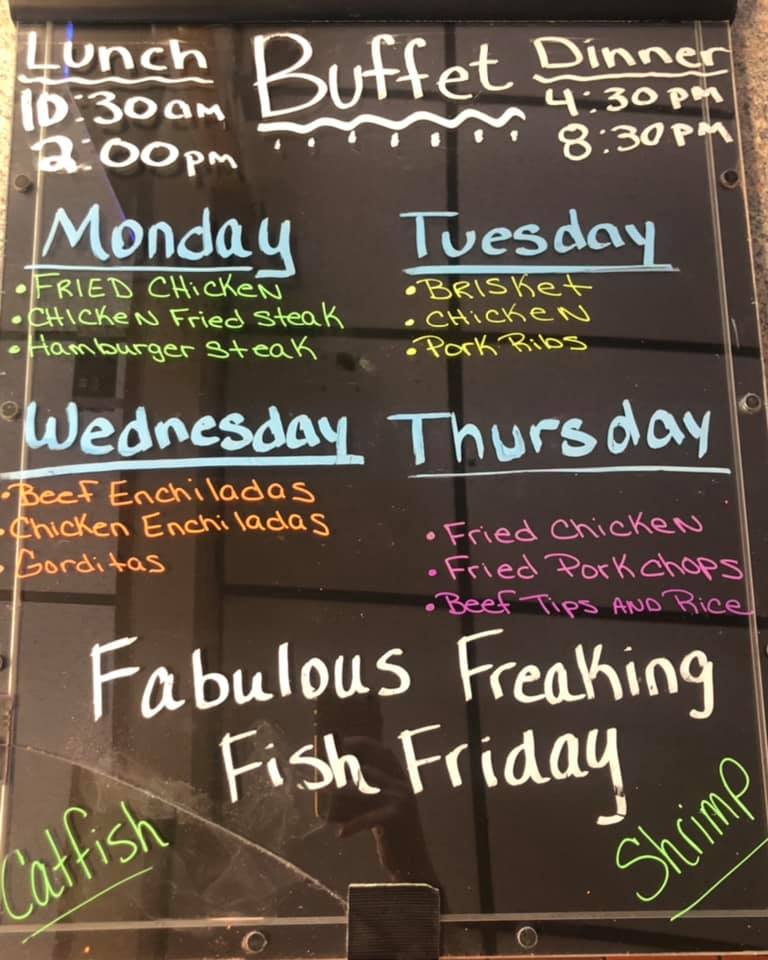 Lunch
10:30am
2:00pm
Buffet
Dinner
4:30pm
8:30pm
Monday
• FRIED CHicKeN
• CHICKeN Fried Steak
• Hamburger Steak
Tuesday
• BRISKet
• CHICKEN
• Pork Ribs
Wednesday
• Beef Enchiladas
• Chicken Enchiladas
• Gorditas
Thursday
• Fried Chicken
• Fried Pork chops
• Beef Tips AND Rice
Fabulous Freaking
Fish Friday
Catfish
Shrimp